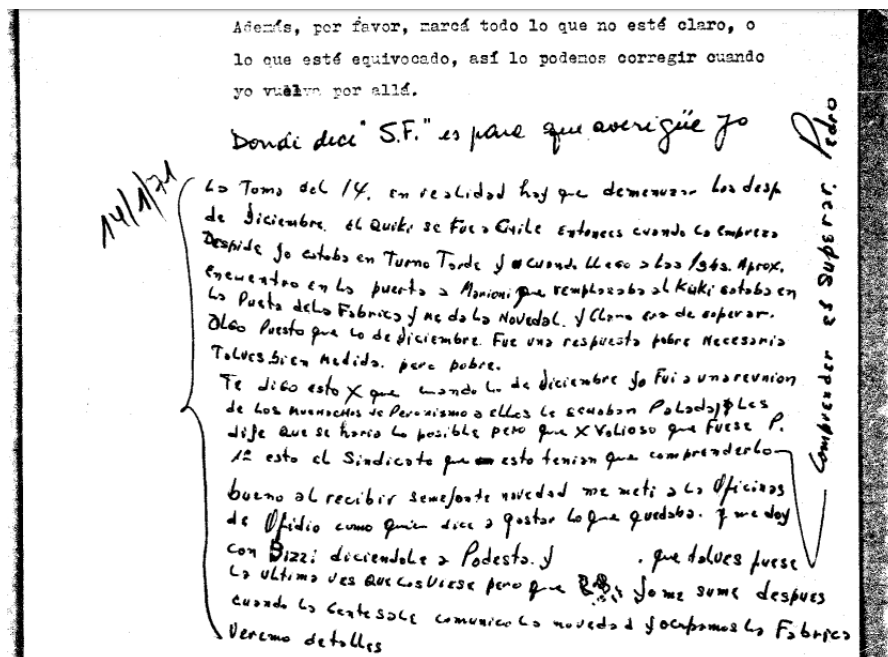 Además, por favor, marcá todo lo que no esté claro, o
lo que esté equivocado, así lo podemos corregir cuando
yo vuelva por allá.
Donde dice "S.F." es para que averigüe yo
14/1/71
La Toma del 14. en realidad hay que demenuzar los desp
de diciembre. el Quiki se Fue a Chile entonces cuando la empreza
Despide yo estaba en Turno Tarde y cuando llego a las Aprox.
encuentro en la puerta a Marioni que remplazaba al Kuki estaba en
La Pueta dela Fabrica y me da la Novedal. y Claro era de esperar.
Algo Puesto que lo de diciembre. Fue una respuesta pobre Necesaria
Talves bien medida. pero pobre.
Te digo esto X que cuando lo de diciembre yo Fui a una reunion
de Los muchachos de Peronismo a elles le Les
dije que se haria lo posible pero que X Valioso que Fuese P.
1º esto el Sindicato que esto tenian que comprenderlo
bueno al recibir semejante novedad me meti a la Oficinas
de Ofidio como quien dice a gastar lo que quedaba. y me doy
con Bizzi diciendole a Podesta. y . que talves fuese
La ultima ves que los viese pero que yo me sume despues
cuando la Gente sale comunico la novedad y ocupamos la Fabrica
Veremo detalles
Comprender es superar. Pedro